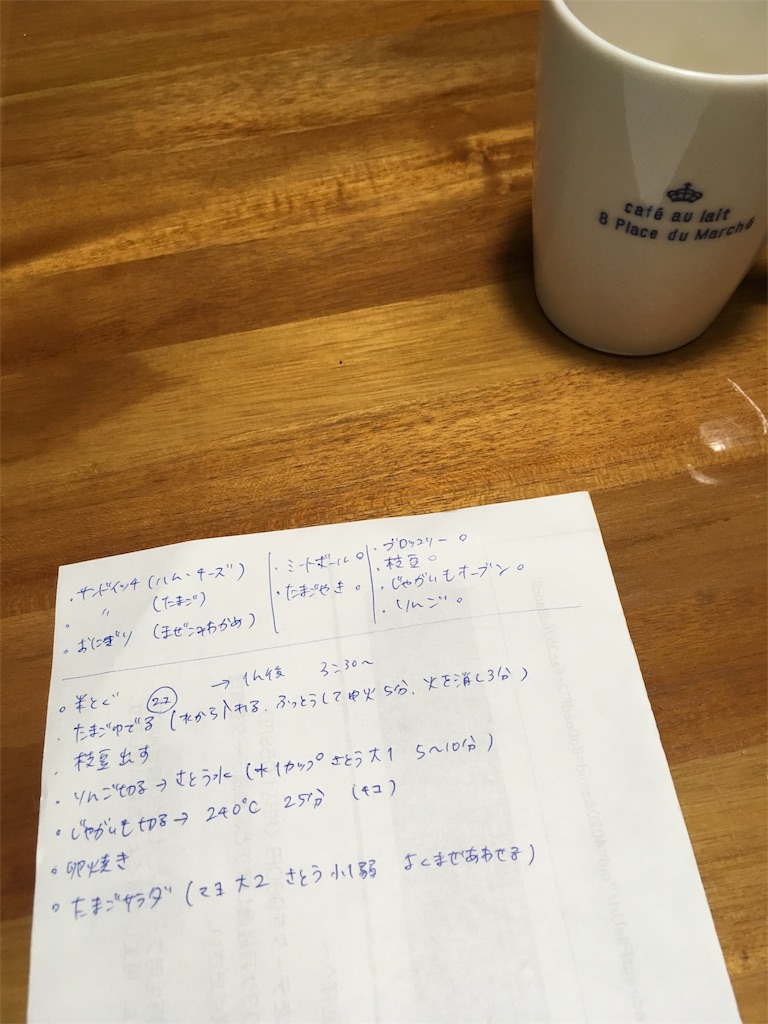 café au lait
8 Place du Marché
・サンドイッチ (ハム・チーズ)
・ 〃 (たまご)
・おにぎり (まぜこみわかめ)
・ミートボール ○
・たまごやき ○
・ブロッコリー ○
・枝豆 ○
・じゃがいもオーブン ○
・りんご ○
○ 米とぐ → 1h後 3:30〜
・たまごゆでる (水から入れる、ふっとうして中火5分、火を消し3分)
・枝豆出す
・りんご切る → さとう水 (水1カップ さとう大1 5〜10分)
・じゃがいも切る → 240℃ 25分
○ 卵焼き
○ たまごサラダ (マヨ大2 さとう小1弱 よくまぜあわせる)